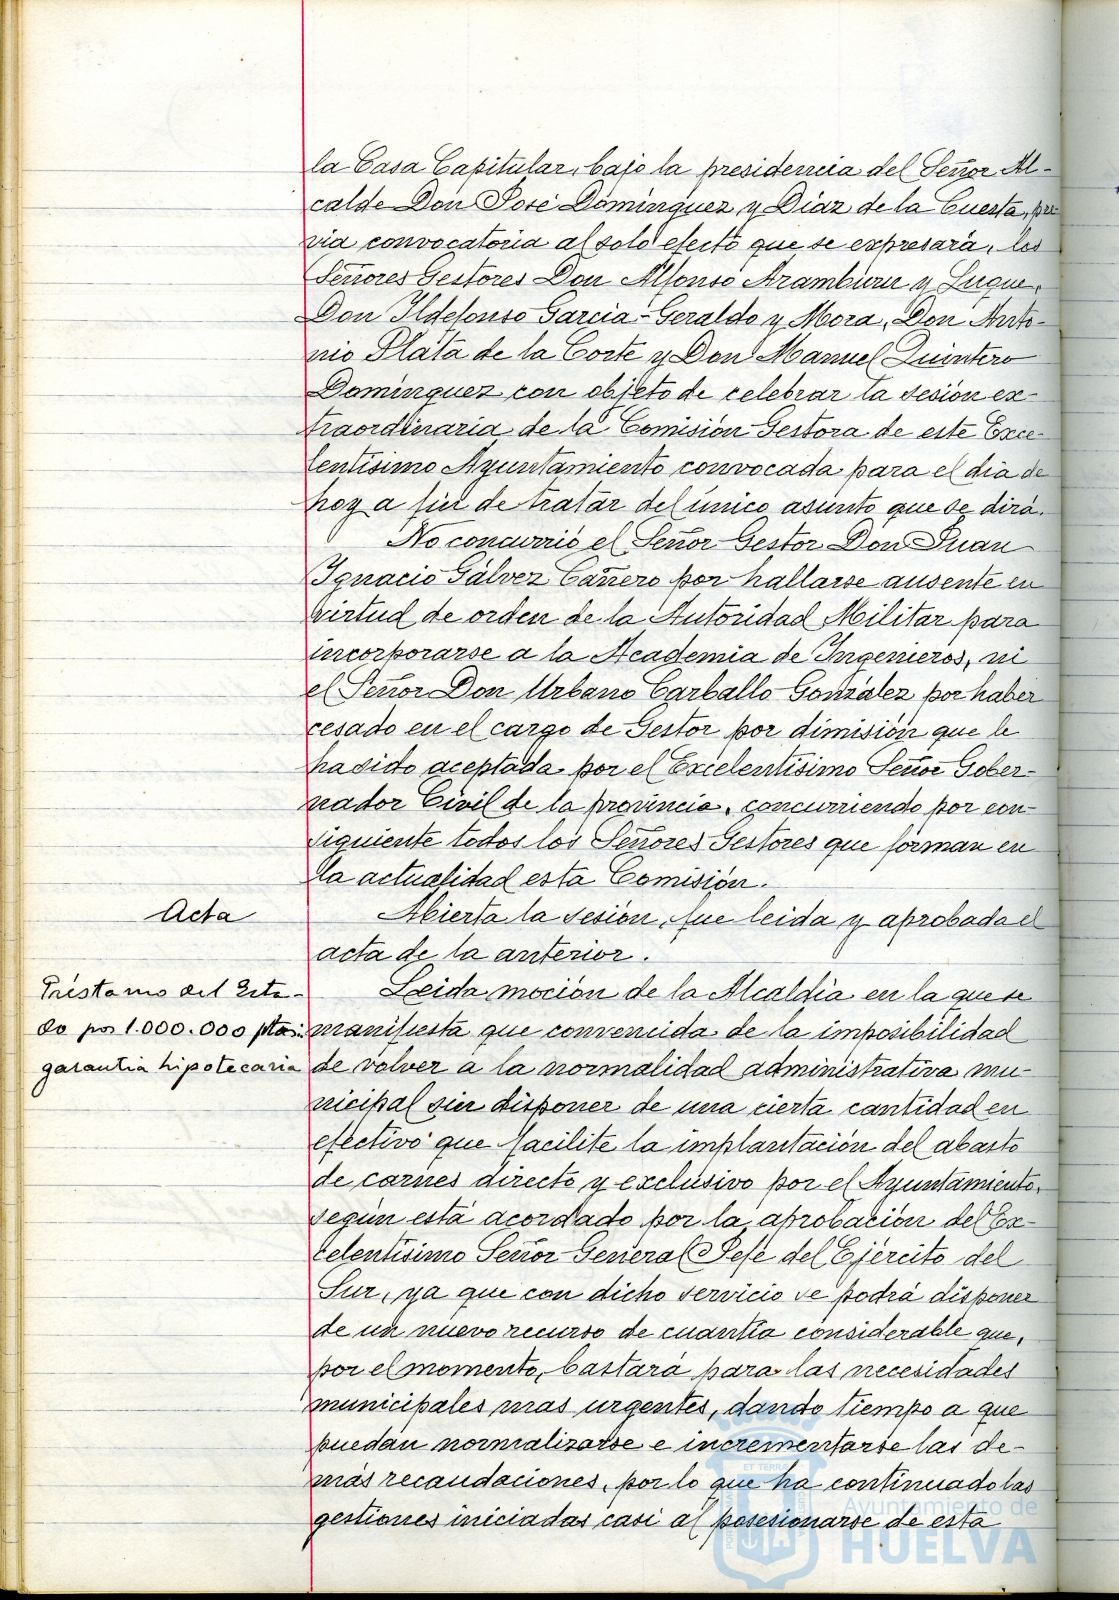 la Casa Capitular, bajo la presidencia del Señor Al-
calde Don José Domínguez y Díaz de la Cuesta, pre
via convocatoria al solo efecto que se expresará, los
Señores Gestores Don Alfonso Aramburu y Luque,
Don Ildefonso García-Geraldo y Mora, Don Anto-
nio Plata de la Corte y Don Manuel Quintero
Domínguez con objeto de celebrar la sesión ex-
traordinaria de la Comisión Gestora de este Exce-
lentísimo Ayuntamiento convocada para el día de
hoy a fin de tratar del único asunto que se dirá.
No concurrió el Señor Gestor Don Juan
Ignacio Gálvez Cañero por hallarse ausente en
virtud de orden de la Autoridad Militar para
incorporarse a la Academia de Ingenieros, ni
el Señor Don Urbano Carballo González por haber
cesado en el cargo de Gestor por dimisión que le
ha sido aceptada por el Excelentísimo Señor Gober-
nador Civil de la provincia, concurriendo por con-
siguiente todos los Señores Gestores que forman en
la actualidad esta Comisión.
Acta
Abierta la sesión, fue leida y aprobada el
acta de la anterior.
Préstamo del Esta-
do por 1.000.000 ptas:
garantia hipotecaria
Leida moción de la Alcaldía en la que se
manifiesta que convencida de la imposibilidad
de volver a la normalidad administrativa mu-
nicipal sin disponer de una cierta cantidad en
efectivo que facilite la implantación del abasto
de carnes directo y exclusivo por el Ayuntamiento,
según está acordado por la aprobación del Ex-
celentísimo Señor General Jefe del Ejército del
Sur, ya que con dicho servicio se podrá disponer
de un nuevo recurso de cuantía considerable que,
por el momento, bastará para las necesidades
municipales mas urgentes, dando tiempo a que
puedan normalizarse e incrementarse las de-
más recaudaciones, por lo que ha continuado las
gestiones iniciadas casi al posesionarse de esta
Ayuntamiento de
HUELVA